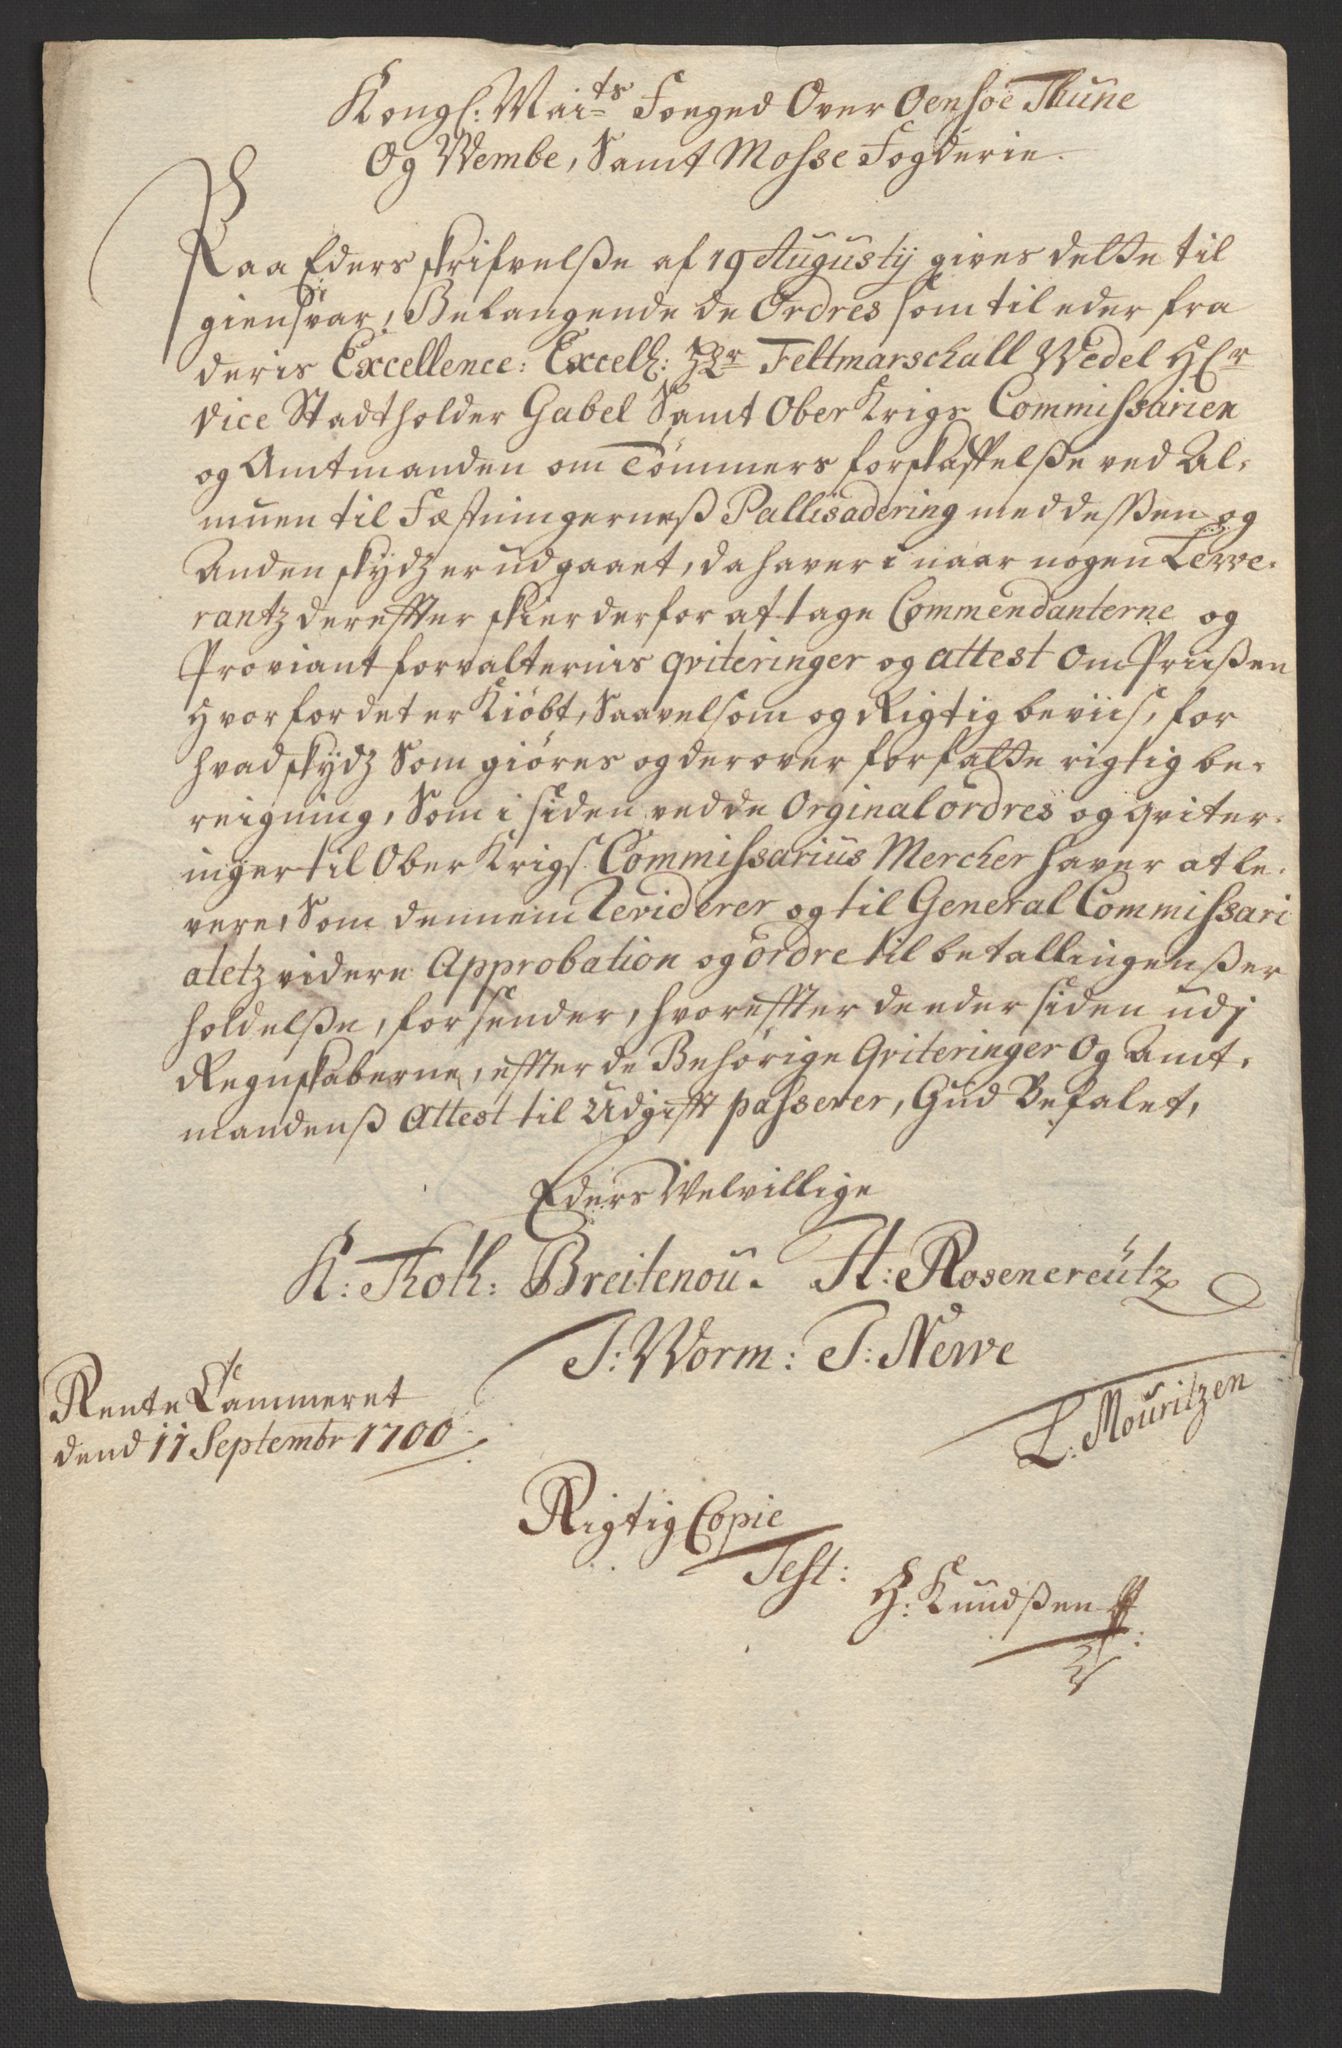 Kongl: Mai:ts Foeged Over Oensøe Thune
Og Wembe, Samt Mosse Fogderie.
Paa Eders skrifvelße af 19 Augustij gives dette til
giensvar, Belangende de Ordres som til eder fra
deris Excellence: Excell: Hr Feltmarschall Wedel Hr
Vice Stadtholder Gabel Samt Ober Krigs Commissarien
og Amtmanden om Tømmers forskaffelße ved Al-
muen til Fæstningerneß Pallisadering med dessen og
Anden skydz er udgaaet, da haver i naar nogen Lewe-
rantz dereffter skier derfor at tage Commendanterne og
Proviantforvalternis qviteringer og attest Om Priißen
Hvorfor det er Kiöbt, Saavelsom og Rigtig beviis, for
hvad skydz Som giøres og derover forfatte rigtig be-
reigning, Som i siden ved de Orginal ordres og qviter-
inger til Ober Krigs Commissarius Mercker haver at le-
vere, Som dennem Reviderer og til General Commissari
atetz videre Approbation og ordre til betallingenß er
holdelße, forsender, hvoreffter de eder siden udj
Regnskaberne, effter de Behørige Qviteringer Og Amt-
mandenß Attest til Udgifft passerer, Gud Befalet,
Eders Velvillige
K: Thott: Breitenou. H: Rosencreütz
J: Worm: T: Newe
L: Mouritzen
Rente Cammeret
dend 11 Septembr 1700
Rigtig Copie
Test: H: Knudßen